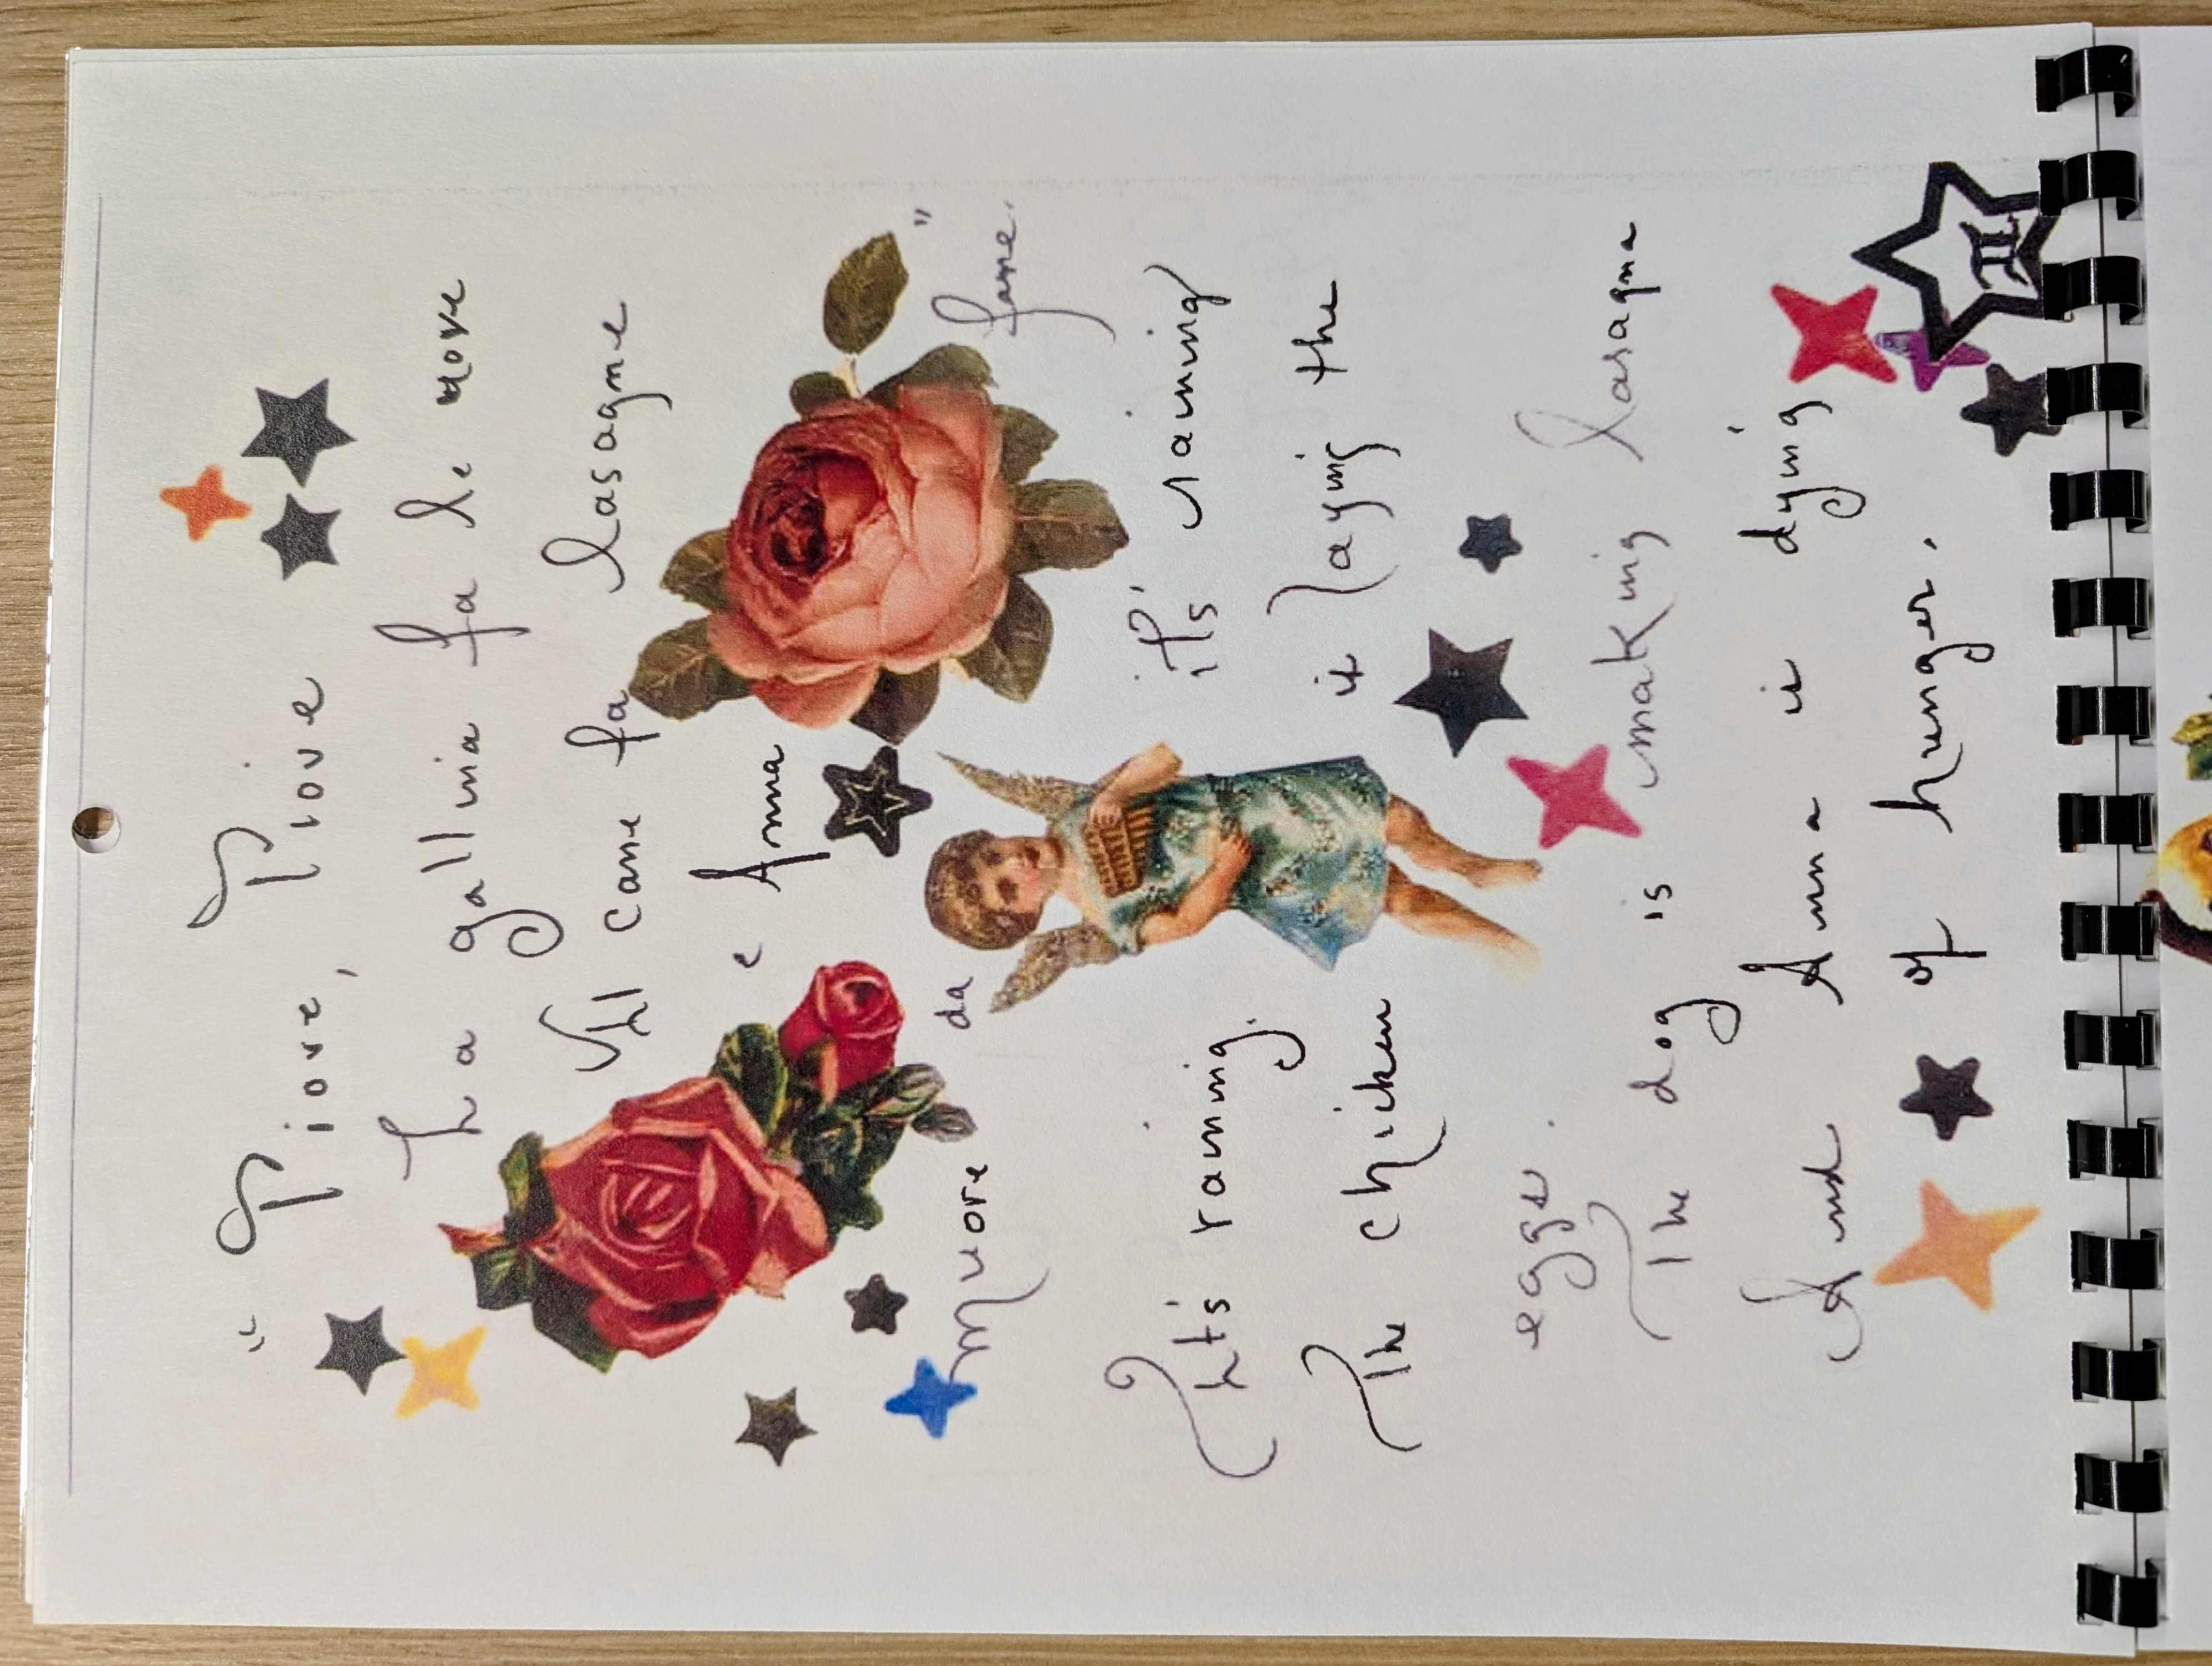 "Piove, Piove
La gallina fa le uove
Il cane fa lasagne
e Anna
muore da fame."
It's raining. it's raining
The chicken is laying the
eggs.
The dog is making lasagna
And Anna is dying
of hunger.
II